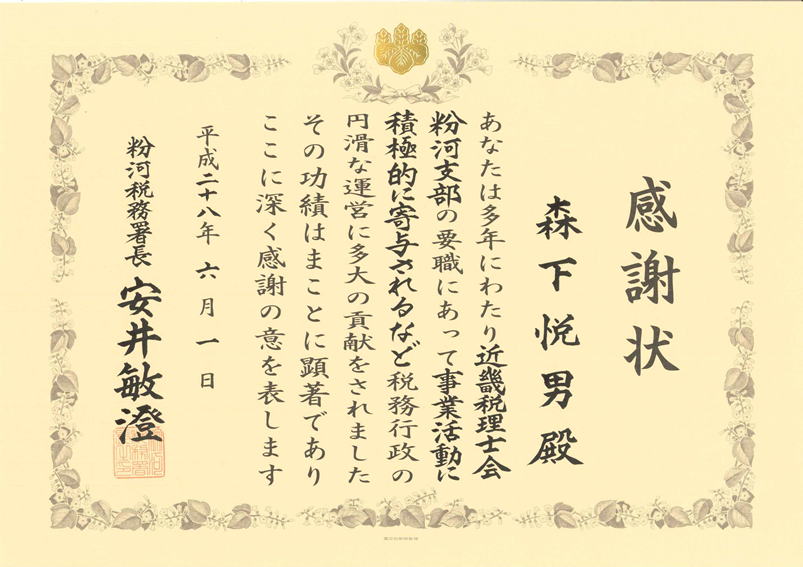 感謝状
森下悦男殿
あなたは多年にわたり近畿税理士会
粉河支部の要職にあって事業活動に
積極的に寄与されるなど税務行政の
円滑な運営に多大の貢献をされました
その功績はまことに顕著であり
ここに深く感謝の意を表します
平成二十八年六月一日
粉河税務署長 安井敏澄